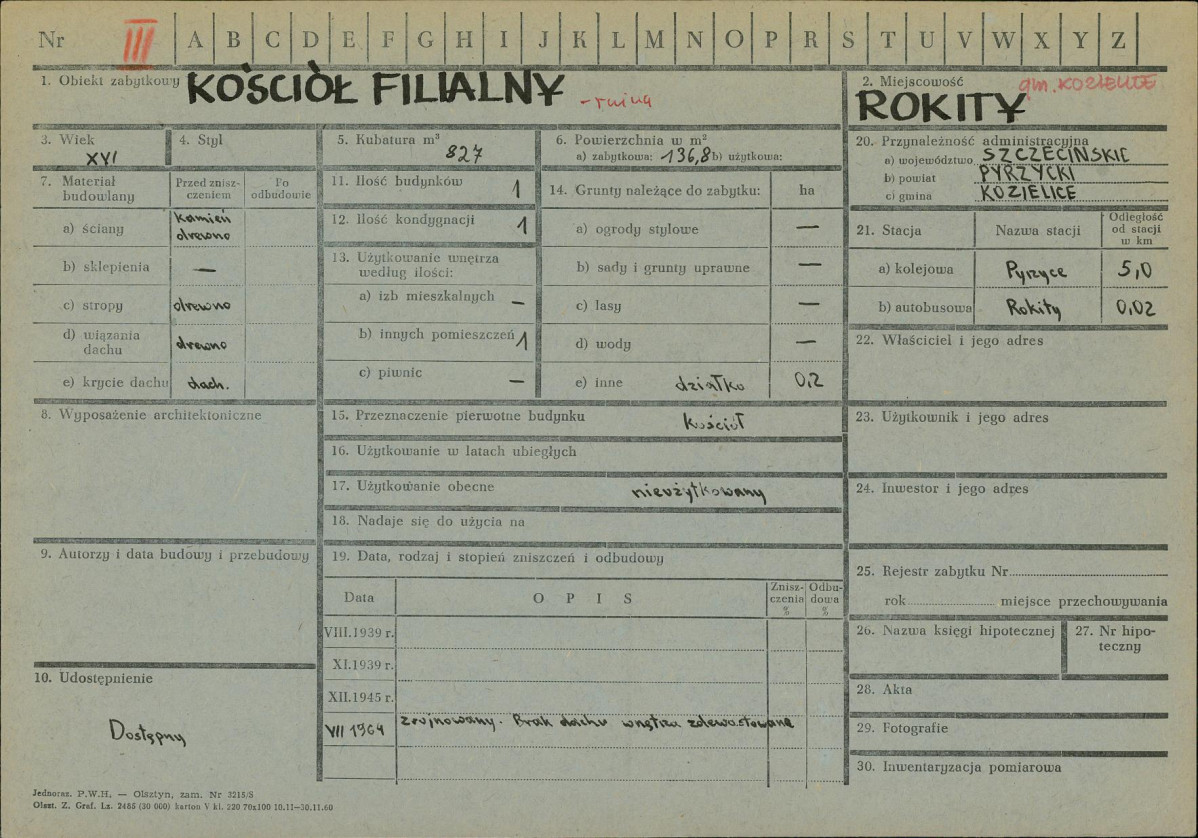 Nr III A B C D E F G H I J K L M N O P R S T U V W X Y Z
1. Obiekt zabytkowy KOŚCIÓŁ FILIALNY - ruina
2. Miejscowość gm. KOZIELICE
ROKITY
3. Wiek
XVI
4. Styl
5. Kubatura m³
827
6. Powierzchnia w m²
a) zabytkowa: 136,8 b) użytkowa:
7. Materiał budowlany
Przed zniszczeniem
Po odbudowie
a) ściany kamień drewno
b) sklepienia —
c) stropy drewno
d) wiązania dachu drewno
e) krycie dachu dach.
8. Wyposażenie architektoniczne
9. Autorzy i data budowy i przebudowy
10. Udostępnienie
Dostępny
11. Ilość budynków 1
12. Ilość kondygnacji 1
13. Użytkowanie wnętrza
według ilości:
a) izb mieszkalnych —
b) innych pomieszczeń 1
c) piwnic —
14. Grunty należące do zabytku: ha
a) ogrody stylowe —
b) sady i grunty uprawne —
c) lasy —
d) wody —
e) inne działka 0,2
15. Przeznaczenie pierwotne budynku kościół
16. Użytkowanie w latach ubiegłych
17. Użytkowanie obecne nieużytkowany
18. Nadaje się do użycia na
19. Data, rodzaj i stopień zniszczeń i odbudowy
Data O P I S Zniszczenia % Odbudowa %
VIII.1939 r.
XI.1939 r.
XII.1945 r.
VII 1964 zrujnowany. Brak dachu wnętrza zdewastowane
20. Przynależność administracyjna
a) województwo SZCZECIŃSKIE
b) powiat PYRZYCKI
c) gmina KOZIELICE
21. Stacja Nazwa stacji Odległość od stacji w km
a) kolejowa Pyrzyce 5,0
b) autobusowa Rokity 0,02
22. Właściciel i jego adres
23. Użytkownik i jego adres
24. Inwestor i jego adres
25. Rejestr zabytku Nr
rok miejsce przechowywania
26. Nazwa księgi hipotecznej
27. Nr hipoteczny
28. Akta
29. Fotografie
30. Inwentaryzacja pomiarowa
Jednoraz. P.W.H. — Olsztyn, zam. Nr 3215/S
Olszt. Z. Graf. Lz. 2485 (30 000) karton V kl. 220 70x100 10.11—30.11.60